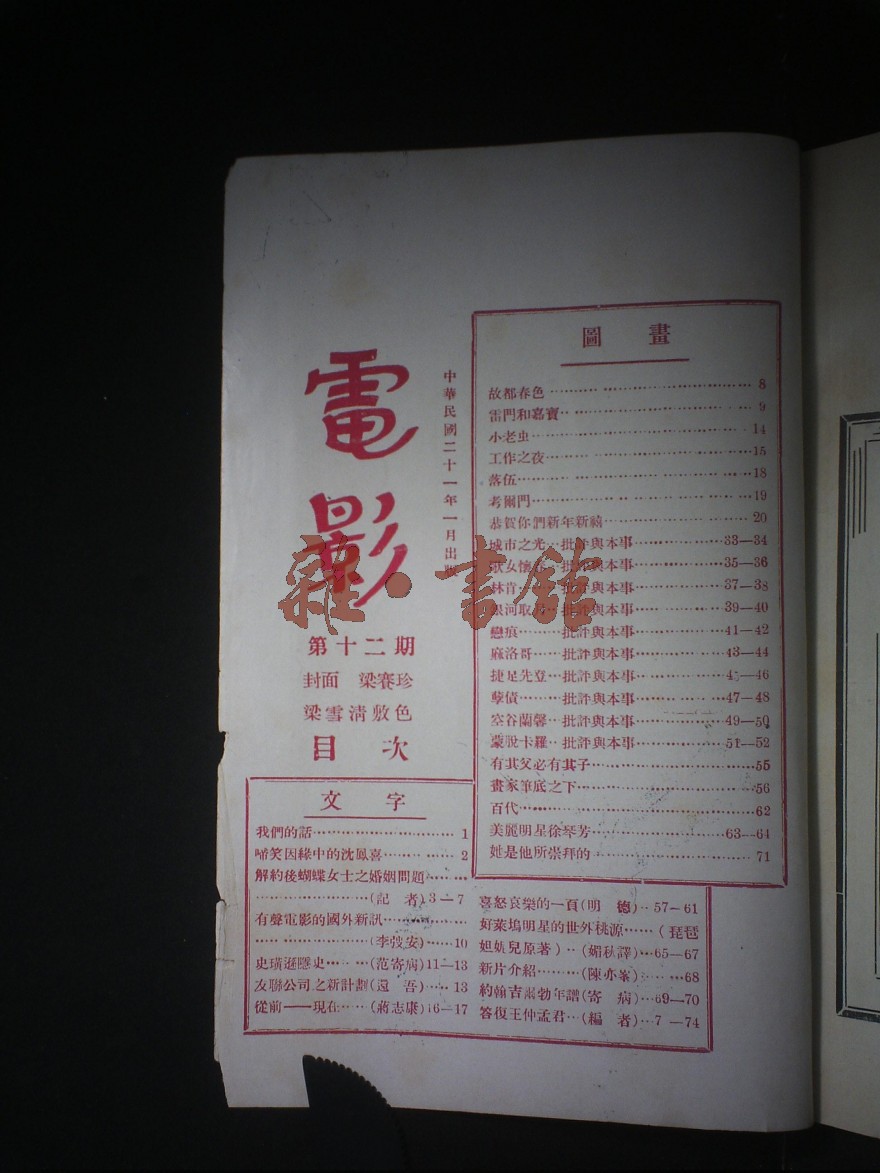 電影
中華民國二十一年一月出版
第十二期
封面 梁賽珍
梁雪清敷色
目次
圖畫
故都春色 8
雷門和嘉寶 9
小老虫 14
工作之夜 15
落伍 18
考爾門 19
恭賀你們新年新禧 20
城市之光 批評與本事 33—34
歌女 批評與本事 35—36
林肯 批評與本事 37—38
銀河取 批評與本事 39—40
戀痕 批評與本事 41—42
麻洛哥 批評與本事 43—44
捷足先登 批評與本事 —46
孽債 批評與本事 47—48
空谷蘭馨 批評與本事 49—50
蒙脫卡羅 批評與本事 51—52
有其父必有其子 55
畫家筆底之下 56
百代 62
美麗明星徐琴芳 63—64
她是他所崇拜的 71
文字
我們的話 1
啼笑因緣中的沈鳳喜 2
解約後蝴蝶女士之婚姻問題
(記者) 3—7
有聲電影的國外新訊
(李弢安) 10
史璜遜歷史 (范寄病) 11—13
友聯公司之新計劃 (還吾) 13
從前——現在 (蔣志康) 16—17
喜怒哀樂的一頁 (明德) 57—61
好萊塢明星的世外桃源 (琵琶
妲妞兒原著) (媚秋譯) 65—67
新片介紹 (陳亦峯) 68
約翰吉爾勃年譜 (寄病) 69—70
答復王仲孟君 (編者) 7 —74
雜·書館